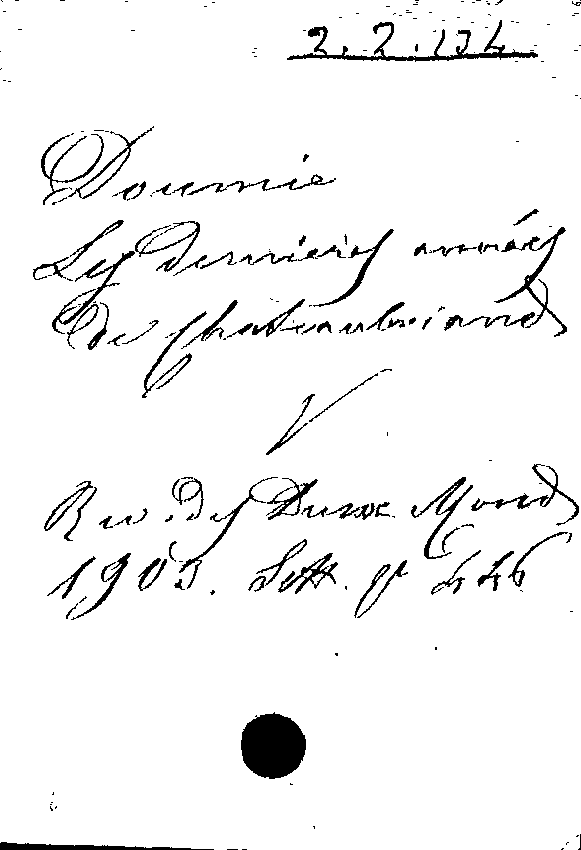 2.2.134
Doumic
Les dernieres années
de Chateaubriand
V
Rev. des Deux Mond
1903. Sett. p 446